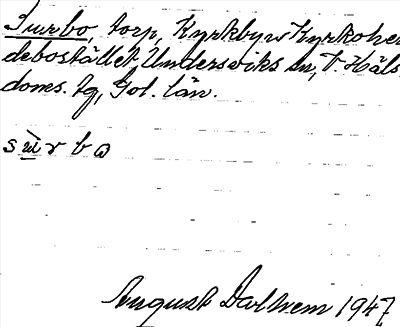 Surbo, torp, Kyrkbyn Kyrkoher
debostället, Undersviks sn, V. Häls
doms. tg, Gvl. län.
s u̇ r b ω
August Dalhem 1947